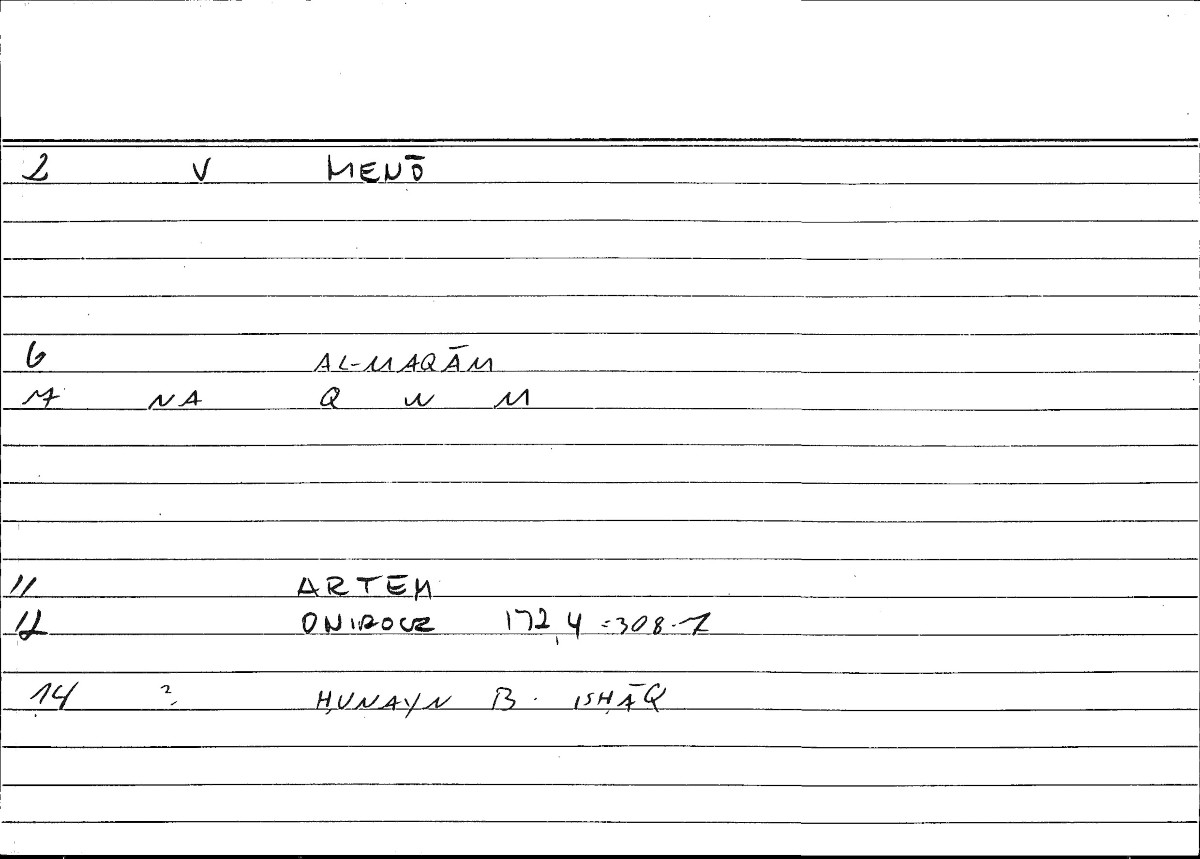 2 V MENŌ
6 AL-MAQĀM
7 NA Q W M
11 ARTEM
12 ONIROCR 172,4 = 308.7
14 ? ḤUNAYN B. ISḤĀQ